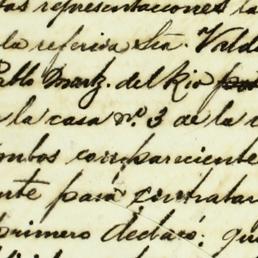 tas representaciones la
la referida Sra. Valde
Pablo Martz. del Rio
la casa nº. 3 de la c
ambos compareciente
nte para contratar
primero declaró: que